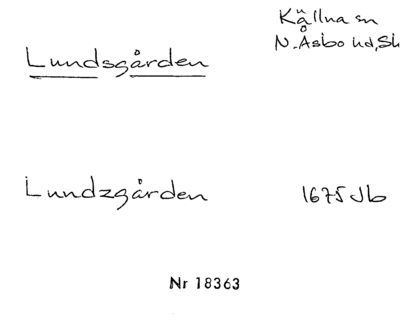 Källna sn
N. Åsbo hd, Sk
Lundsgården
Lundzgården 1675 Jb
Nr 18363